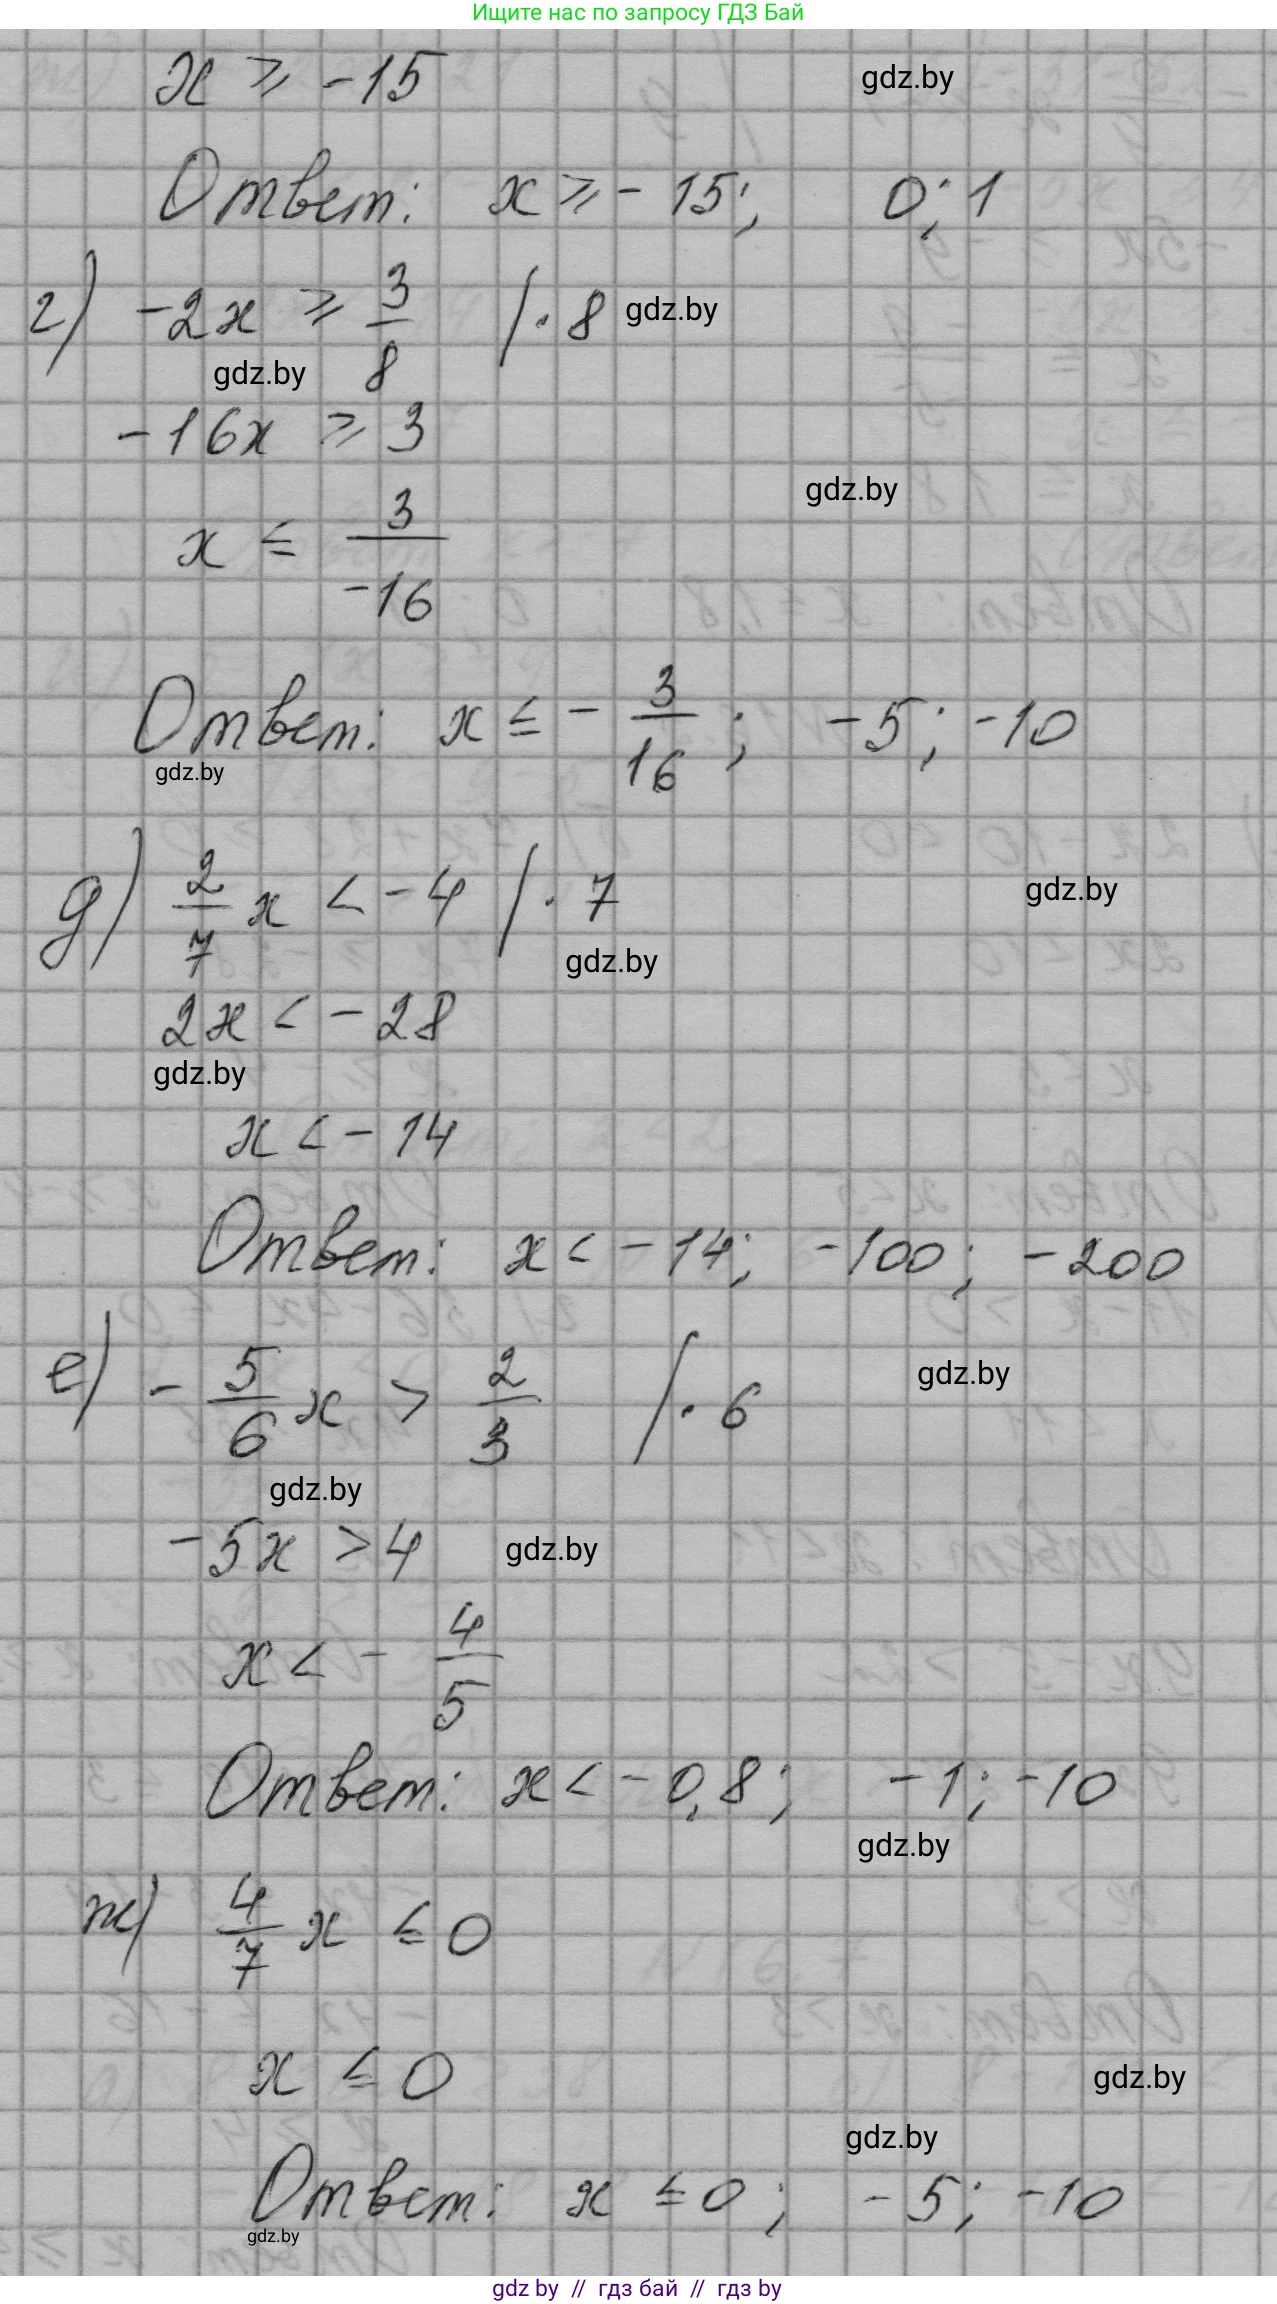 Ищите нас по запросу ГДЗ Бай
x ⩾ -15 gdz.by
Ответ: x ⩾ - 15; 0; 1
г) -2x ⩾ 3/8 / · 8 gdz.by
gdz.by
-16x ⩾ 3
gdz.by
x ≤ 3/-16
Ответ: x ≤ - 3/16; -5; -10
gdz.by
д) 2/7 x < -4 / · 7 gdz.by
gdz.by
2x < -28
gdz.by
x < - 14
Ответ: x < - 14; -100; -200
е) - 5/6 x > 2/3 / · 6 gdz.by
gdz.by
-5x > 4 gdz.by
x < - 4/5
Ответ: x < - 0,8; -1; -10
gdz.by
ж) 4/7 x ≤ 0
x ≤ 0 gdz.by
gdz.by
Ответ: x ≤ 0; -5; -10
gdz.by
gdz by // гдз бай // гдз by